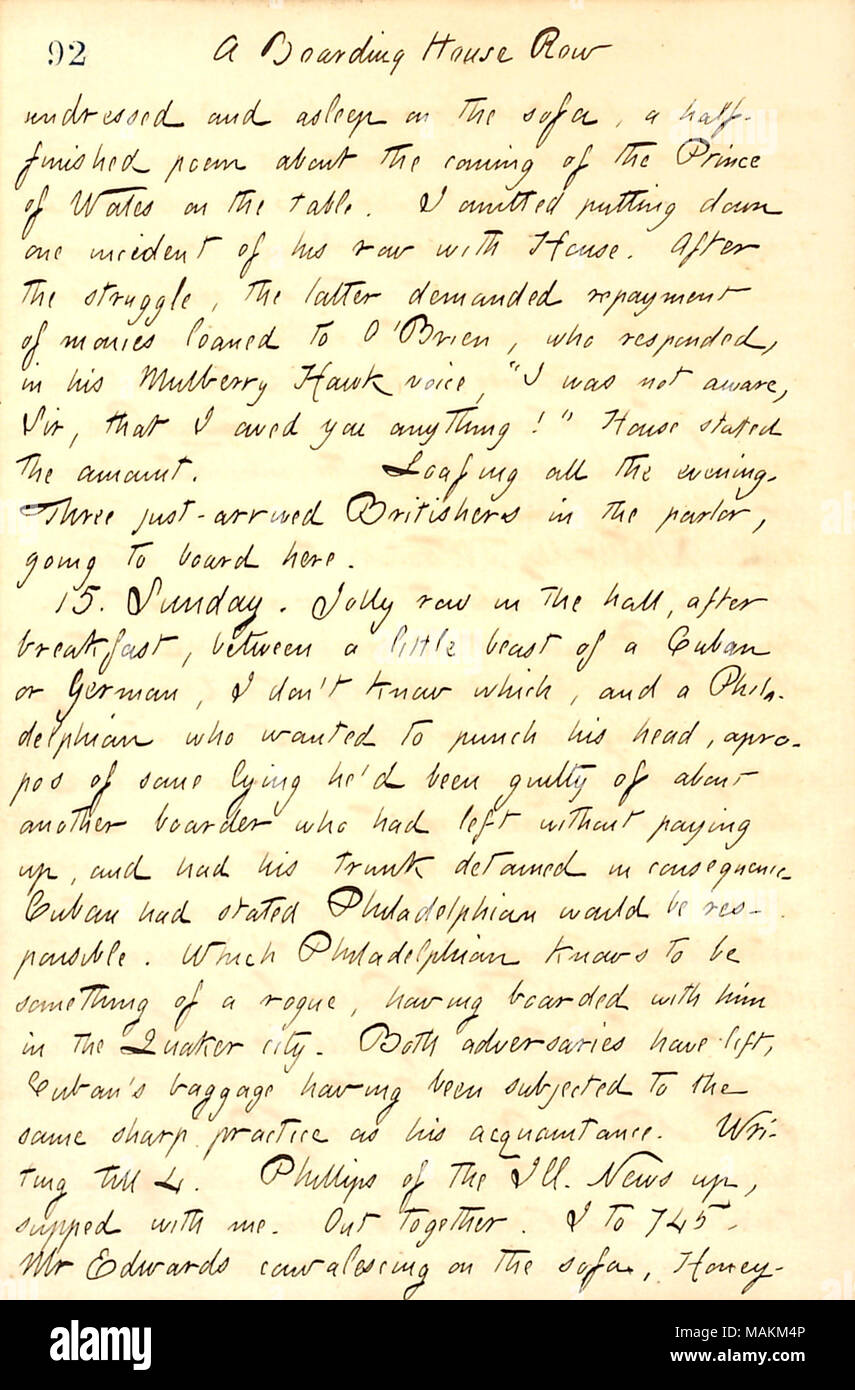 92 A Boarding House Row
undressed and asleep on the sofa, a half-
finished poem about the coming of the Prince
of Wales on the table. I omitted putting down
one incident of his row with House. After
the struggle, the latter demanded repayment
of monies loaned to O'Brien, who responded,
in his Mulberry Hawk voice, "I was not aware,
Sir, that I owed you anything!" House stated
the amount. Loafing all the evening.
Three just-arrived Britishers in the parlor,
going to board here.
15. Sunday. Jolly row in the hall, after
breakfast, between a little beast of a Cuban
or German, I don't know which, and a Phila-
delphian who wanted to punch his head, apro-
pos of some lying he'd been guilty of about
another boarder who had left without paying
up, and had his trunk detained in consequence
Cuban had stated Philadelphian would be res-
ponsible. Which Philadelphian knows to be
something of a rogue, having boarded with him
in the Quaker city. Both adversaries have left,
Cuban's baggage having been subjected to the
same sharp practice as his acquaintance. Wri-
ting till 4. Phillips of the Ill. News up,
supped with me. Out together. I to 745.
Mr Edwards convalescing on the sofa, Honey-
alamy
Image ID: MAKM4P
www.alamy.com